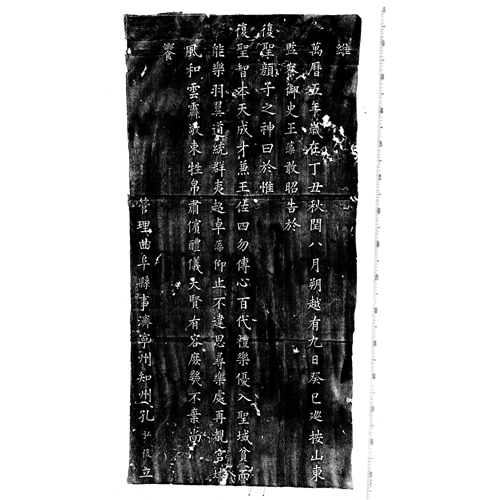 維
萬曆五年歲在丁丑秋閏八月朔越有九日癸巳巡按山東
監察御史王藻敢昭告於
復聖顏子之神曰於惟
復聖智本天成才兼王佐四勿傳心百代禮樂優入聖域貧而
能樂羽翼道統群夷起卓藻仰止不違思尋樂處再覯宮墻
風和雲霽載束牲帛肅儐醴儀大賢有容庶幾不棄尚
饗
管理曲阜縣事濟寧州知州孔弘復立